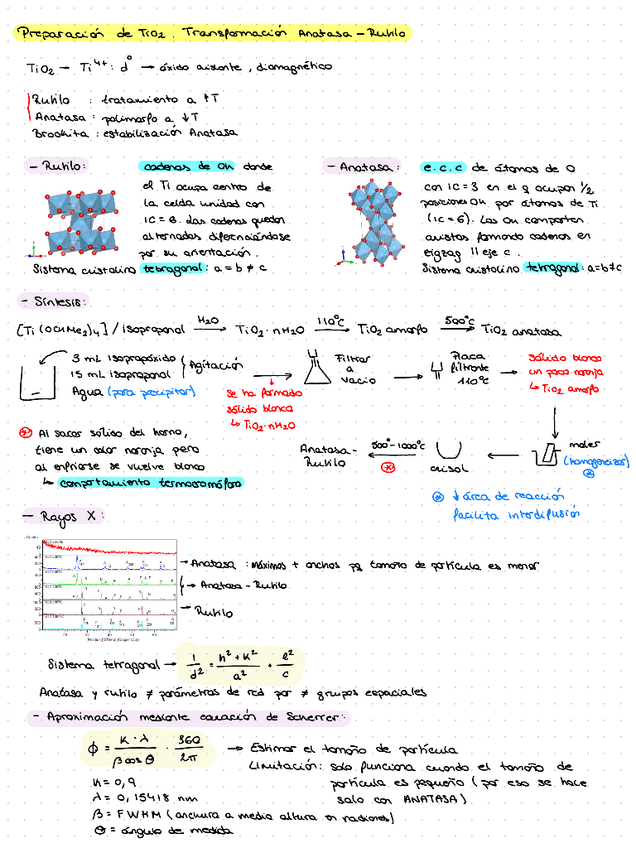 Preparación de TiO₂. Transformación Anatasa - Rutilo
TiO₂ → Ti⁴⁺: d⁰ → óxido aislante, diamagnético
Rutilo : tratamiento a ↑T
Anatasa : polimorfo a ↓T
Brookita : estabilización Anatasa
- Rutilo:
cadenas de Oh donde
el Ti ocupa centro de
la celda unidad con
IC = 6. Las cadenas quedan
alternadas diferenciándose
por su orientación.
Sistema cristalino tetragonal: a = b ≠ c
- Anatasa:
e.c.c de átomos de O
con IC = 3 en el q ocupan 1/2
posiciones Oh por átomos de Ti
(IC = 6). Las Oh comparten
aristas formando cadenas en
zigzag || eje c.
Sistema cristalino tetragonal: a=b≠c
- Síntesis:
[Ti(OCHMe₂)₄] / isopropanol → H₂O → TiO₂·nH₂O → 110°C → TiO₂ amorfo → 500°C → TiO₂ anatasa
3 mL isopropóxido
15 mL isopropanol
Agitación
Agua (para precipitar)
se ha formado
sólido blanco
↳ TiO₂·nH₂O
Filtrar
a
vacío
Placa
filtrante
110°C
sólido blanco
un poco naranja
↳ TiO₂ amorfo
moler
(homogeneizar)
crisol
500°-1000°C
Anatasa-
Rutilo
* Al sacar sólido del horno,
tiene un color naranja pero
al enfriarse se vuelve blanco
↳ comportamiento termocromóforo
* ↓ área de reacción
facilita interdifusión
- Rayos X:
→ Anatasa : máximos + anchos pq tamaño de partícula es menor
→ Anatasa - Rutilo
→ Rutilo
Sistema tetragonal → 1/d² = h² + k²/a² + l²/c
Anatasa y rutilo ≠ parámetros de red por ≠ grupos espaciales
- Aproximación mediante ecuación de Scherrer:
ϕ = K · λ / β cos θ · 360 / 2π → Estimar el tamaño de partícula
Limitación: solo funciona cuando el tamaño de
partícula es pequeño (por eso se hace
solo con ANATASA)
K = 0,9
λ = 0,15418 nm
β = FWHM (anchura a media altura en radianes)
θ = ángulo de medida